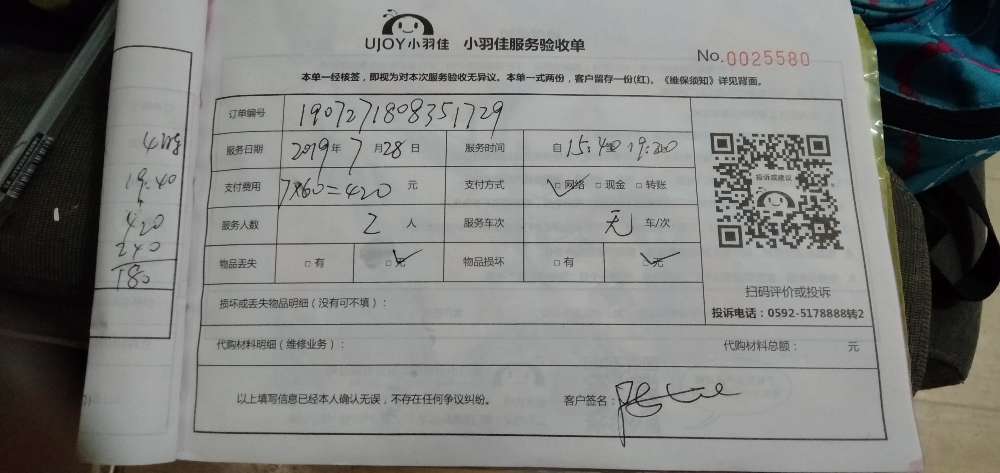 UJOY小羽佳 小羽佳服务验收单
No.0025580
本单一经核签，即视为对本次服务验收无异议。本单一式两份，客户留存一份(红)。《维保须知》详见背面。
订单编号 1907271808351729
服务日期 2019年7月28日 服务时间 自15:40 19:20
支付费用 7×60=420元 支付方式 ☑网络 □现金 □转账
服务人数 2人 服务车次 无 车/次
物品丢失 □有 ☑无 物品损坏 □有 ☑无
投诉或建议
扫码评价或投诉
投诉电话：0592-5178888转2
损坏或丢失物品明细（没有可不填）：
代购材料明细（维修业务）： 代购材料总额： 元
以上填写信息已经本人确认无误，不存在任何争议纠纷。 客户签名：
19:40
420
240
180